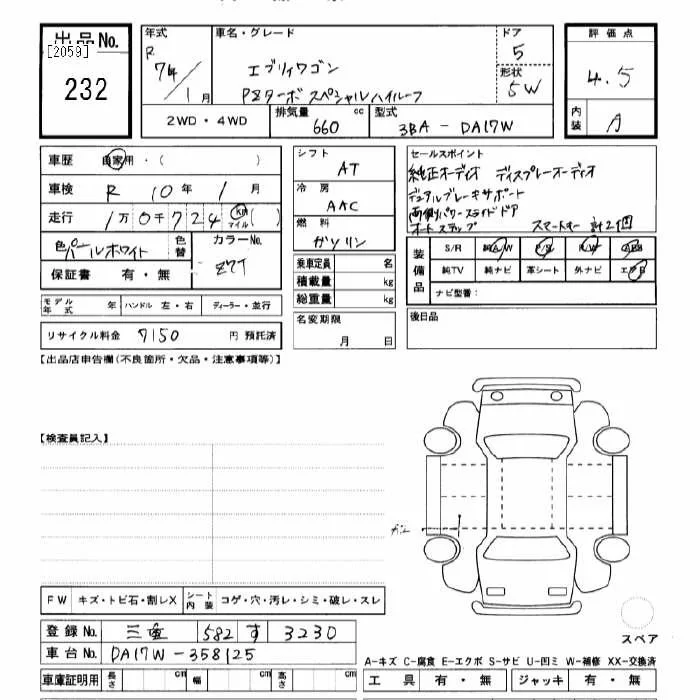 出品No.
[2059]
232
年式 R 7年/1月
車名・グレード
エブリィワゴン
PZターボスペシャルハイルーフ
ドア 5
形状 5W
2WD・4WD
排気量 660 cc
型式 3BA-DA17W
評価点
4.5
内装 A
車歴 自家用・( )
車検 R 10年 1月
走行 1万0千724 km マイル( )
色 パールホワイト
色替
カラーNo. Z7T
保証書 有・無
モデル年式 年
ハンドル 左・右
ディーラー・並行
リサイクル料金 7150 円 預託済
シフト
AT
冷房
AAC
燃料
ガソリン
乗車定員 名
積載量 kg
総重量 kg
名変期限
月 日
セールスポイント
純正オーディオ ディスプレーオーディオ
デュアルブレーキサポート
両側パワースライドドア
オートステップ スマートキー 計2個
装備品
S/R 純A/W P/S P/W ABS
純TV 純ナビ 革シート 外ナビ エアB
ナビ型番:
後日品
【出品店申告欄(不良箇所・欠品・注意事項等)】
【検査員記入】
FW キズ・トビ石・割レX
シート内装 コゲ・穴・汚レ・シミ・破レ・スレ
登録No. 三重 582 す 3230
車台No. DA17W-358125
車庫証明用 長さ cm 幅 cm 高さ cm
スペア
A-キズ C-腐食 E-エクボ S-サビ U-凹ミ W-補修 XX-交換済
工具 有・無 ジャッキ 有・無